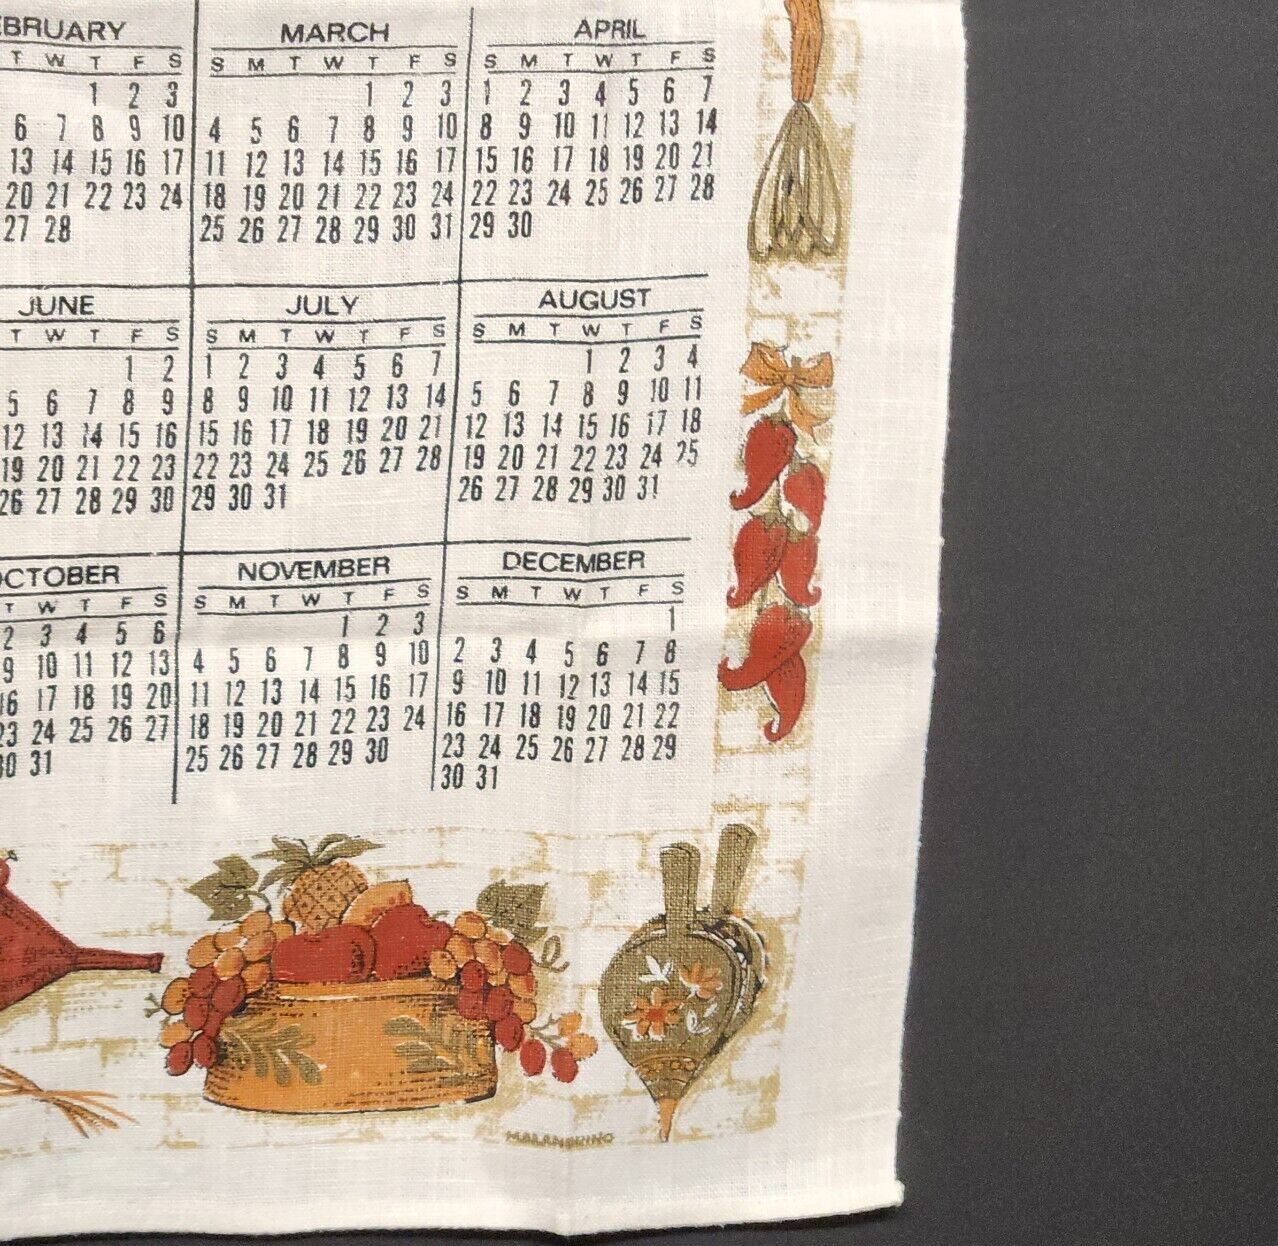 EBRUARY MARCH APRIL
T W T F S S M T W T F S S M T W T F S
1 2 3 1 2 3 1 2 3 4 5 6 7
6 7 8 9 10 4 5 6 7 8 9 10 8 9 10 11 12 13 14
13 14 15 16 17 11 12 13 14 15 16 17 15 16 17 18 19 20 21
20 21 22 23 24 18 19 20 21 22 23 24 22 23 24 25 26 27 28
27 28 25 26 27 28 29 30 31 29 30
JUNE JULY AUGUST
T W T F S S M T W T F S S M T W T F S
1 2 1 2 3 4 5 6 7 1 2 3 4
5 6 7 8 9 8 9 10 11 12 13 14 5 6 7 8 9 10 11
12 13 14 15 16 15 16 17 18 19 20 21 12 13 14 15 16 17 18
19 20 21 22 23 22 23 24 25 26 27 28 19 20 21 22 23 24 25
26 27 28 29 30 29 30 31 26 27 28 29 30 31
OCTOBER NOVEMBER DECEMBER
T W T F S S M T W T F S S M T W T F S
2 3 4 5 6 1 2 3 1
9 10 11 12 13 4 5 6 7 8 9 10 2 3 4 5 6 7 8
16 17 18 19 20 11 12 13 14 15 16 17 9 10 11 12 13 14 15
23 24 25 26 27 18 19 20 21 22 23 24 16 17 18 19 20 21 22
30 31 25 26 27 28 29 30 23 24 25 26 27 28 29
30 31
MALANDRINO